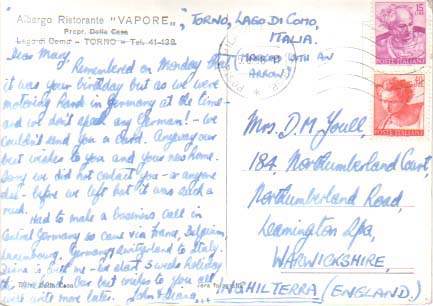 Albergo Ristorante "VAPORE", TORNO, LAGO DI COMO,
Propr. Della Casa
ITALIA.
Lago di Como - TORNO - Tel. 41-438
(MARKED WITH AN
ARROW)
Dear Mary,
Remembered on Monday that
it was your birthday but as we were
motoring hard in Germany at the time
and we don't speak any German! - we
couldn't send you a card. Anyway our
best wishes to you and your new home.
Sorry we did not contact you - or anyone
else - before we left but it was such a
rush.
Had to make a business call in
Central Germany so came via France, Belgium,
Luxembourg, Germany, Switzerland to Italy.
Diana is with me - we start 3 weeks holiday
Our best wishes to you all
write more later. John & Diana
Mrs. D. M. Youll,
184, Northumberland Court,
Northumberland Road,
Leamington Spa,
WARWICKSHIRE,
INGHILTERRA (ENGLAND).
POSTE ITALIANE
POSTE ITALIANE